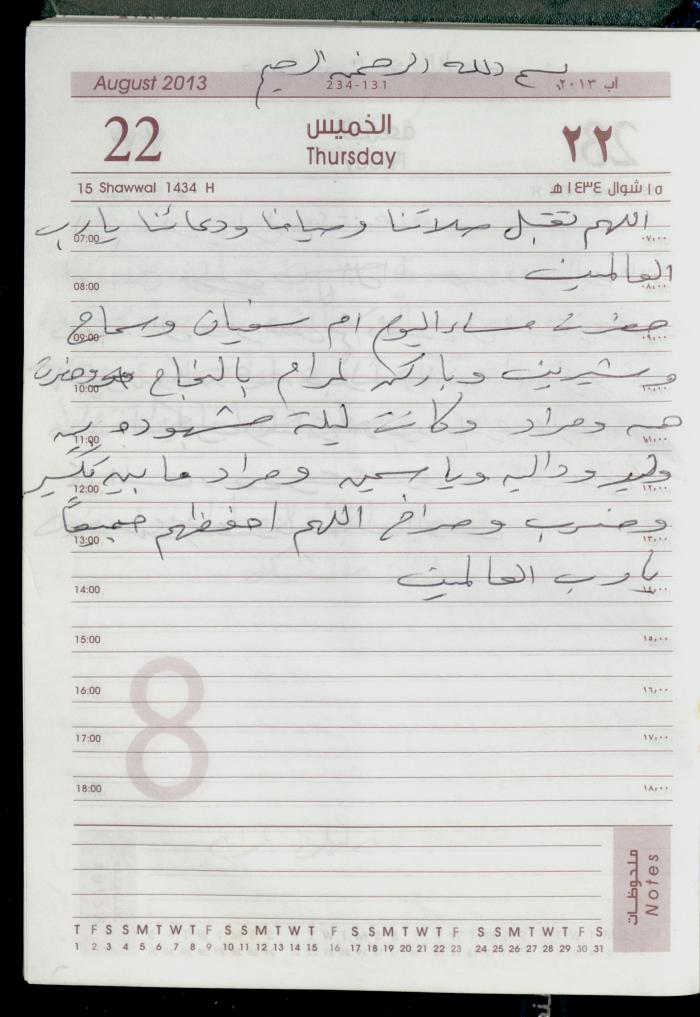 بسم الله الرحمن الرحيم
August 2013
234-131
آب ٢٠١٣م
22
الخميس
Thursday
٢٢
15 Shawwal 1434 H
١٥ شوال ١٤٣٤ هـ
اللهم تقبل صلاتنا وصيامنا ودعائنا يارب
07:00
٠٧:٠٠
العالمين
08:00
٠٨:٠٠
حضرت مساء اليوم ام سفيان وسماح
09:00
٠٩:٠٠
وشيرين وباركن لمرام بالنجاح وحضرت
10:00
١٠:٠٠
هبه ومراد وكانت ليلة مشهوده بين
11:00
١١:٠٠
وليد وداليه وياسمين ومراد ما بين تكسير
12:00
١٢:٠٠
وضرب وصراخ اللهم احفظهم جميعاً
13:00
١٣:٠٠
يارب العالمين
14:00
١٤:٠٠
15:00
١٥:٠٠
16:00
١٦:٠٠
8
17:00
١٧:٠٠
18:00
١٨:٠٠
ملحوظات
Notes
T F S S M T W T F S S M T W T F S S M T W T F S S M T W T F S
1 2 3 4 5 6 7 8 9 10 11 12 13 14 15 16 17 18 19 20 21 22 23 24 25 26 27 28 29 30 31